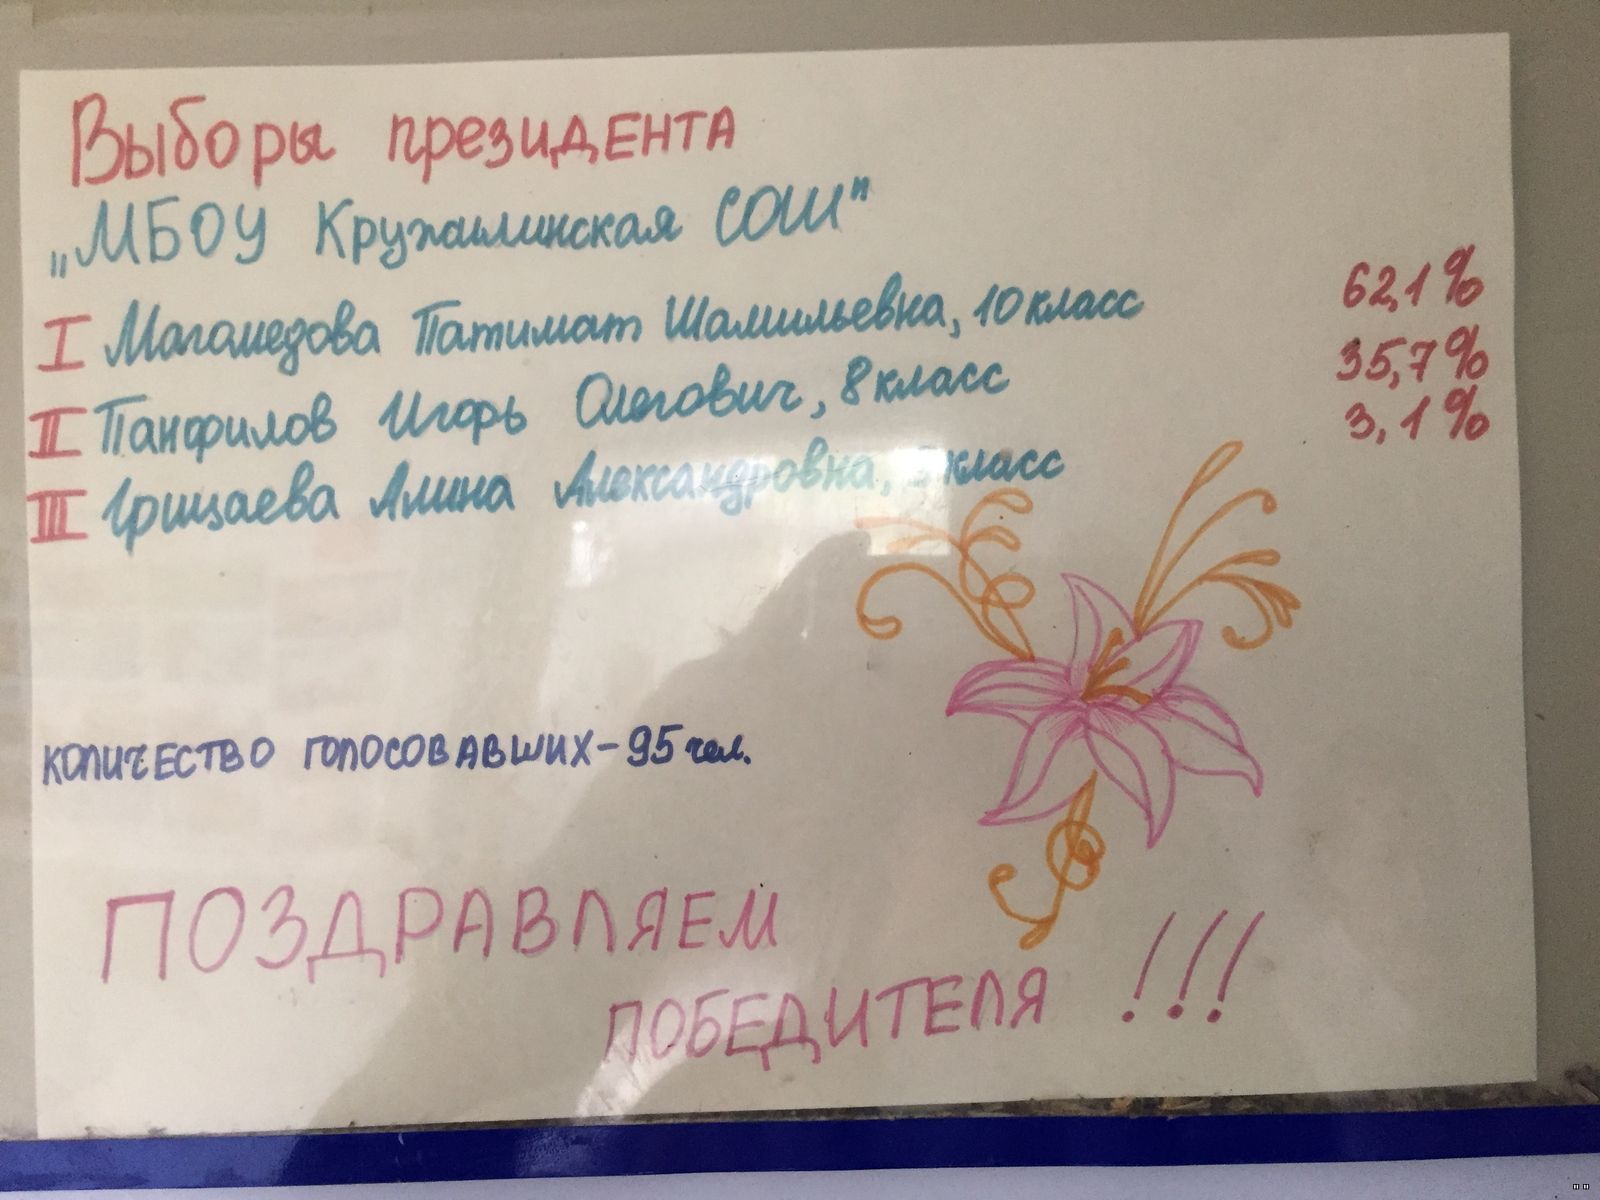 Выборы президента
„МБОУ Кружилинская СОШ"
I Магомедова Патимат Шамильевна, 10 класс 62,1%
II Панфилов Игорь Олегович, 8 класс 35,7%
III Грищаева Алина Александровна, класс 3,1%
количество голосовавших – 95 чел.
ПОЗДРАВЛЯЕМ
ПОБЕДИТЕЛЯ !!!